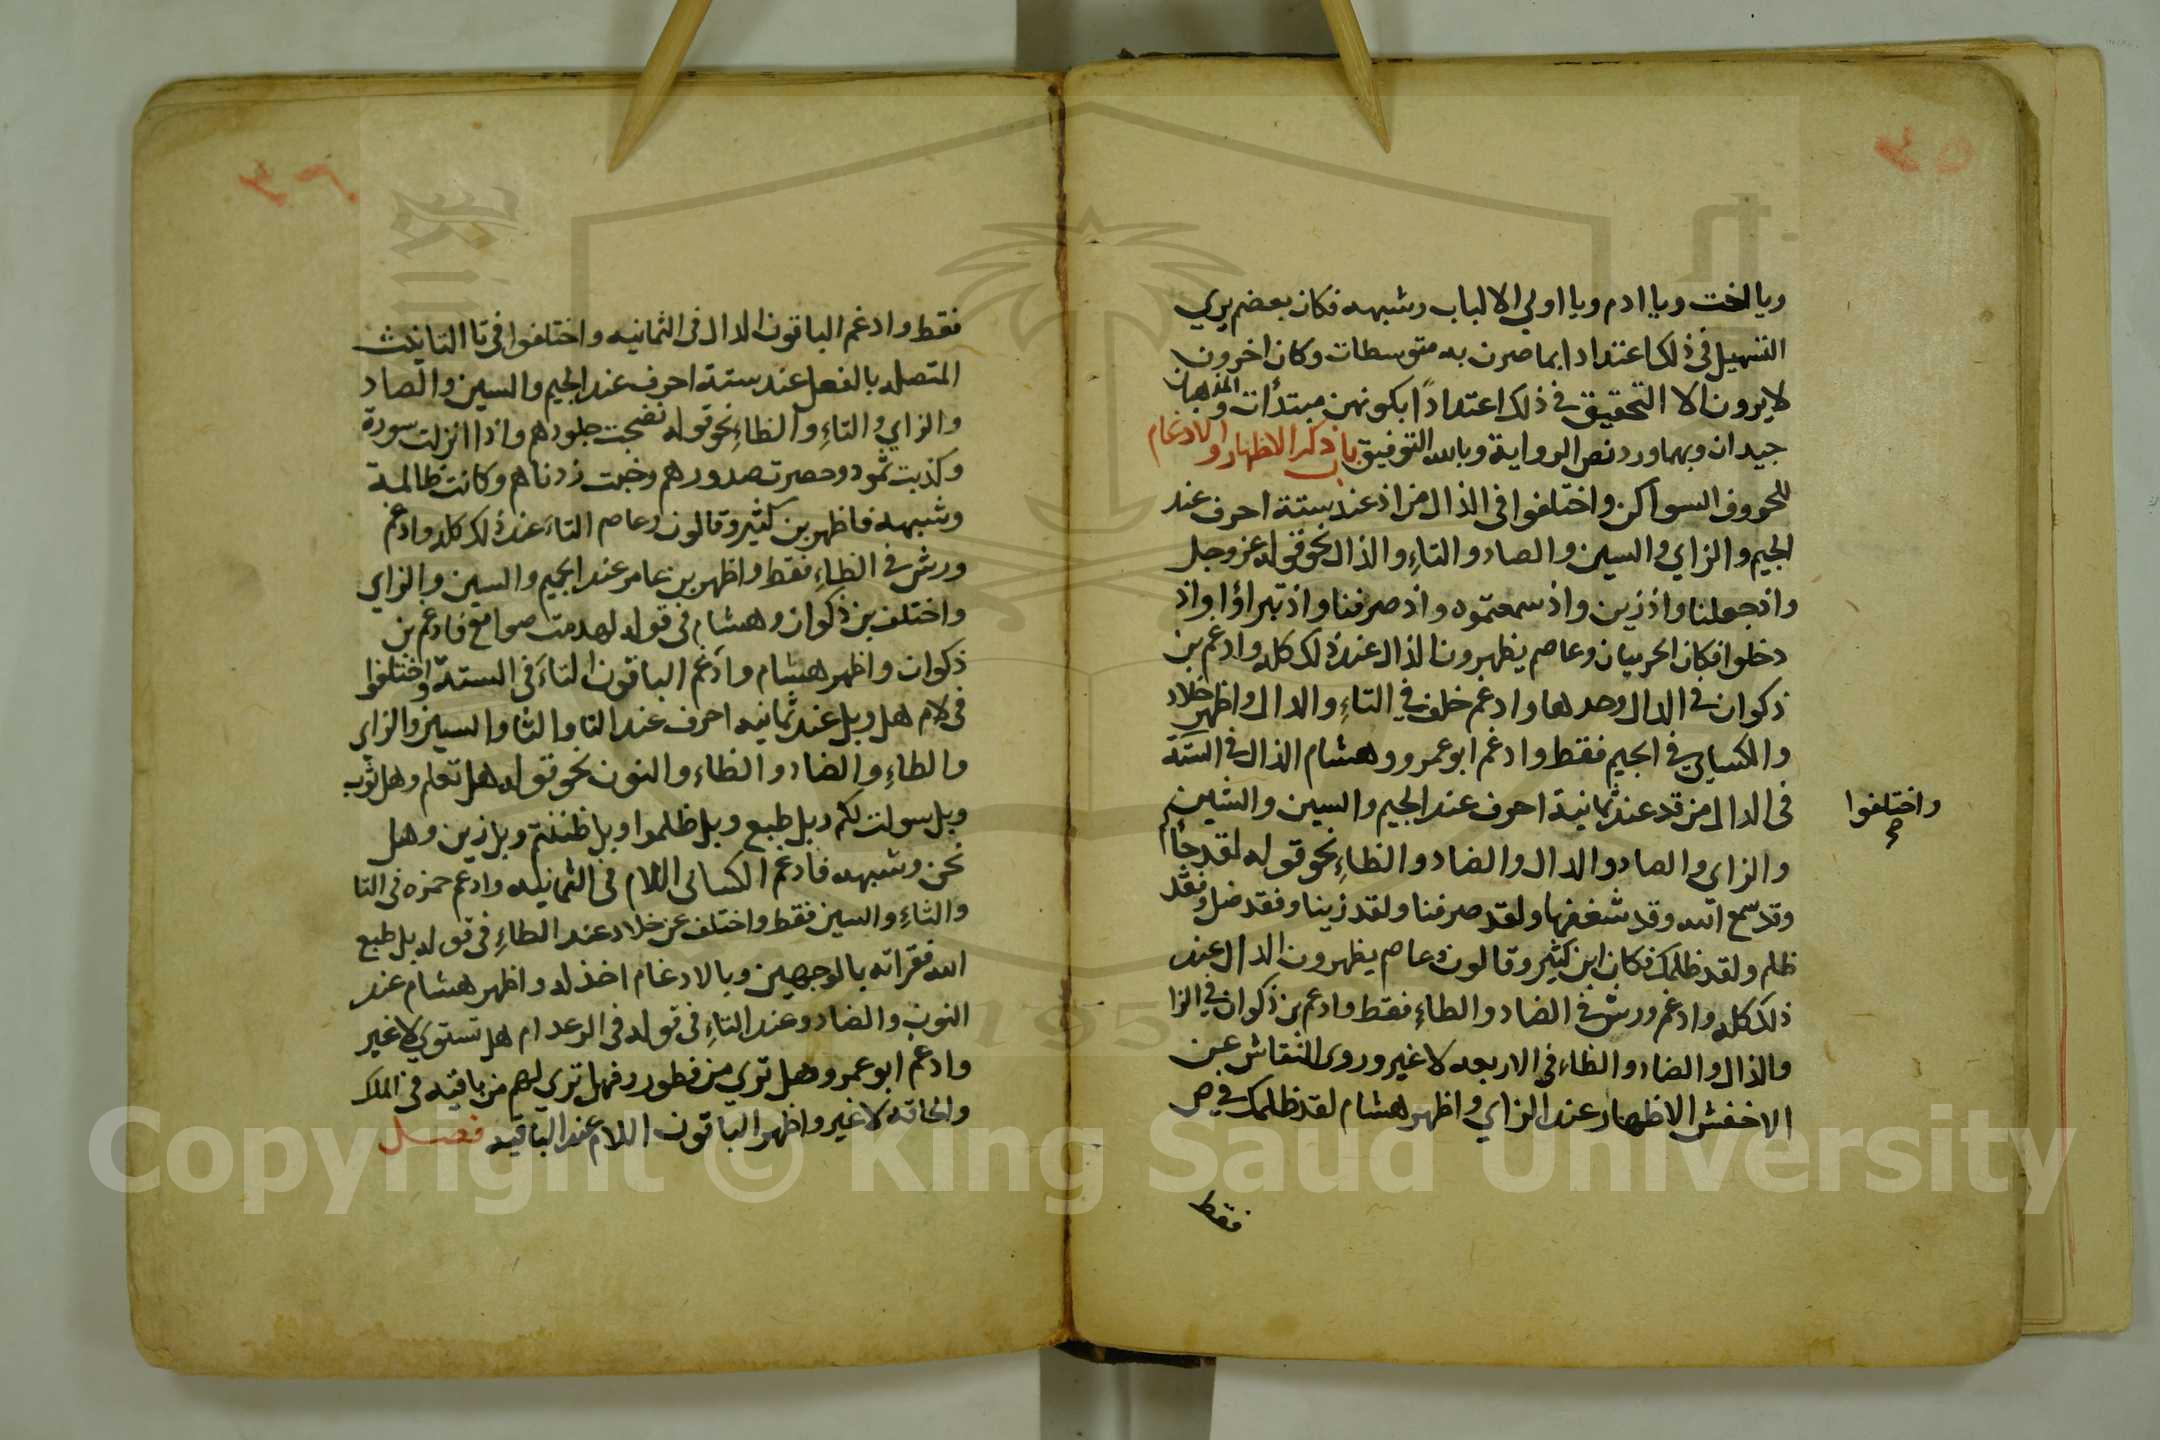 ويااخت ويا ادم ويا اولي الالباب وشبهه فكان بعضهم يري
التسهيل في ذلك اعتدادا بما صرن به متوسطات وكان اخرون
لا يرون الا التحقيق في ذلك اعتمادًا بكونهن مبتدأت والمذهبان
جيدان وبهما ورد نص الرواية وبالله التوفيق باب ذكر الاظهار والادغام
للحروف السواكن واختلفوا في الذال من اذ عند ستة احرف عند
الجيم والزاي والسين والصاد والتاءِ والذال نحو قوله عز وجل
واذ جعلنا واذ زين واذ سمعتموه واذ صرفنا واذ تبراؤا واذ
دخلوا فكان الحرميان وعاصم يظهرون الذال عند ذلك كله وادغم بن
ذكوان في الدال وحدها وادغم خلف في التاءِ والدال واظهر خلاد
والكساي في الجيم فقط وادغم ابو عمرو وهشام الذال في الستة
واختلفوا صح
في الدال من قد عند ثمانية احرف عند الجيم والسين والشين
والزاى والصاد والدال والضاد والظاءِ نحو قوله لقد جاأم
وقد سمع الله وقد شغفها ولقد صرفنا ولقد زينا وفقد ضل وفقد
ظلم ولقد ظلمك فكان ابن كثير وقالون وعاصم يظهرون الدال عند
ذلك كله وادغم ورش في الضاد والظاءِ فقط وادغم بن ذكوان في الزا
والذال والضاد والظاء في الاربعه لا غير وروى النقاش عن
الاخفش الاظهار عند الزاي واظهر هشام لقد ظلمك في ص
فقط
فقط وادغم الباقون الدال في الثمانيه واختلفوا في تا التانيث
المتصله بالفعل عند ستة احرف عند الجيم والسين والصاد
والزاي والتاءِ والظاءِ نحو قوله نضجت جلودهم واذا انزلت سورة
وكذبت ثمود وحصرت صدورهم وخبت زدناهم وكانت ظالمة
وشبهه فاظهر بن كثير وقالون وعاصم التاءَ عند ذلك كله وادغم
ورش في الظاءِ فقط واظهر بن عامر عند الجيم والسين والزاي
واختلف بن ذكوان وهشام في قوله لهدمت صوامع فادغم بن
ذكوان واظهر هشام وادغم الباقون التاءَ في الستة واختلفوا
في لام هل وبل عند ثمانيه احرف عند التا والثا والسين والزاي
والطاءِ والضاد والظاء والنون نحو قوله هل تعلم وهل ثوب
وبل سولت لكم وبل طبع وبل ظلموا وبل ظننتم وبل زين وهل
نحن وشبهه فادغم الكسائى اللام في الثمانيه وادغم حمزه في التا
والثاءِ والسين فقط واختلف عن خلاد عند الطاءِ في قوله بل طبع
الله فقراته بالوجهين وبالادغام اخذ له واظهر هشام عند
النون والضاد وعند التاءِ في قوله في الرعد ام هل تستوي لا غير
وادغم ابو عمرو هل تري من فطور وفهل تري لهم من باقيه في الملك
والحاقه لا غير واظهر الباقون اللام عند الباقيه فصل
Copyright © King Saud University
1957